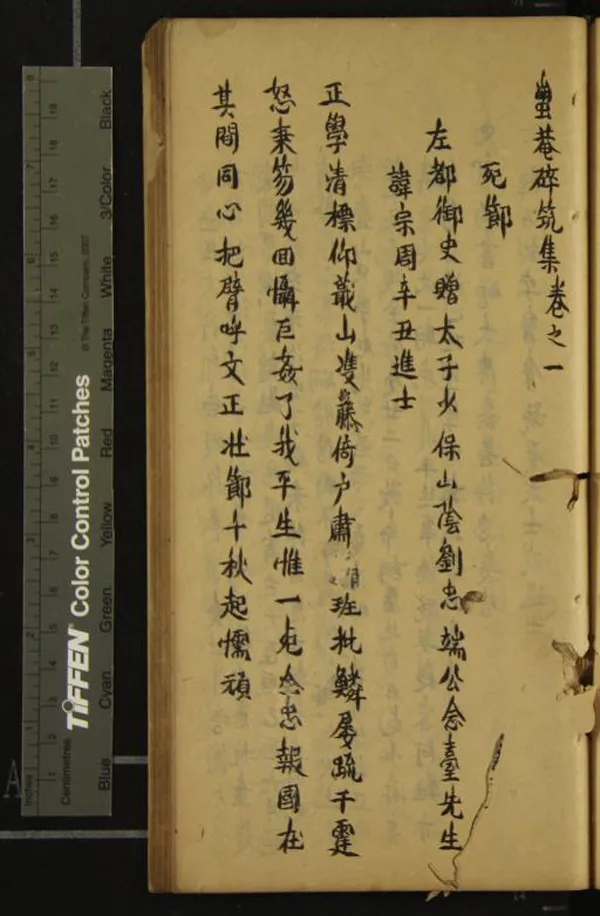 蛩菴碎筑集卷之一
死節
左都御史贈太子少保山陰劉忠端公念臺先生
諱宗周辛丑進士
正學清標仰蕺山雙藤倚户肅清班批鱗屡疏千霆
怒秉笏幾回懾巨姦了我平生惟一死念忠報國在
其間同心把臂呼文正壮節千秋起懦頑
TIFFEN Color Control Patches
© The Tiffen Company, 2007
Blue Cyan Green Yellow Red Magenta White 3/Color Black
Inches 1 2 3 4 5 6 7 8
Centimetres 1 2 3 4 5 6 7 8 9 10 11 12 13 14 15 16 17 18 19
A